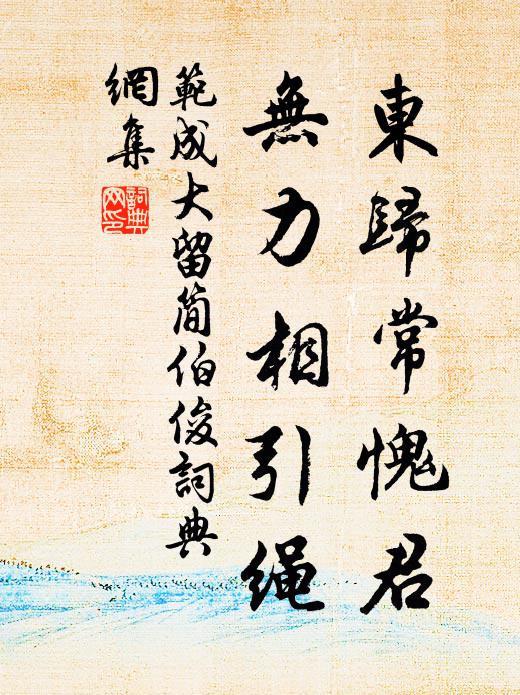 東歸常愧君
無力相引繩
範成大留簡伯俊詞典
網集
詞典
网印